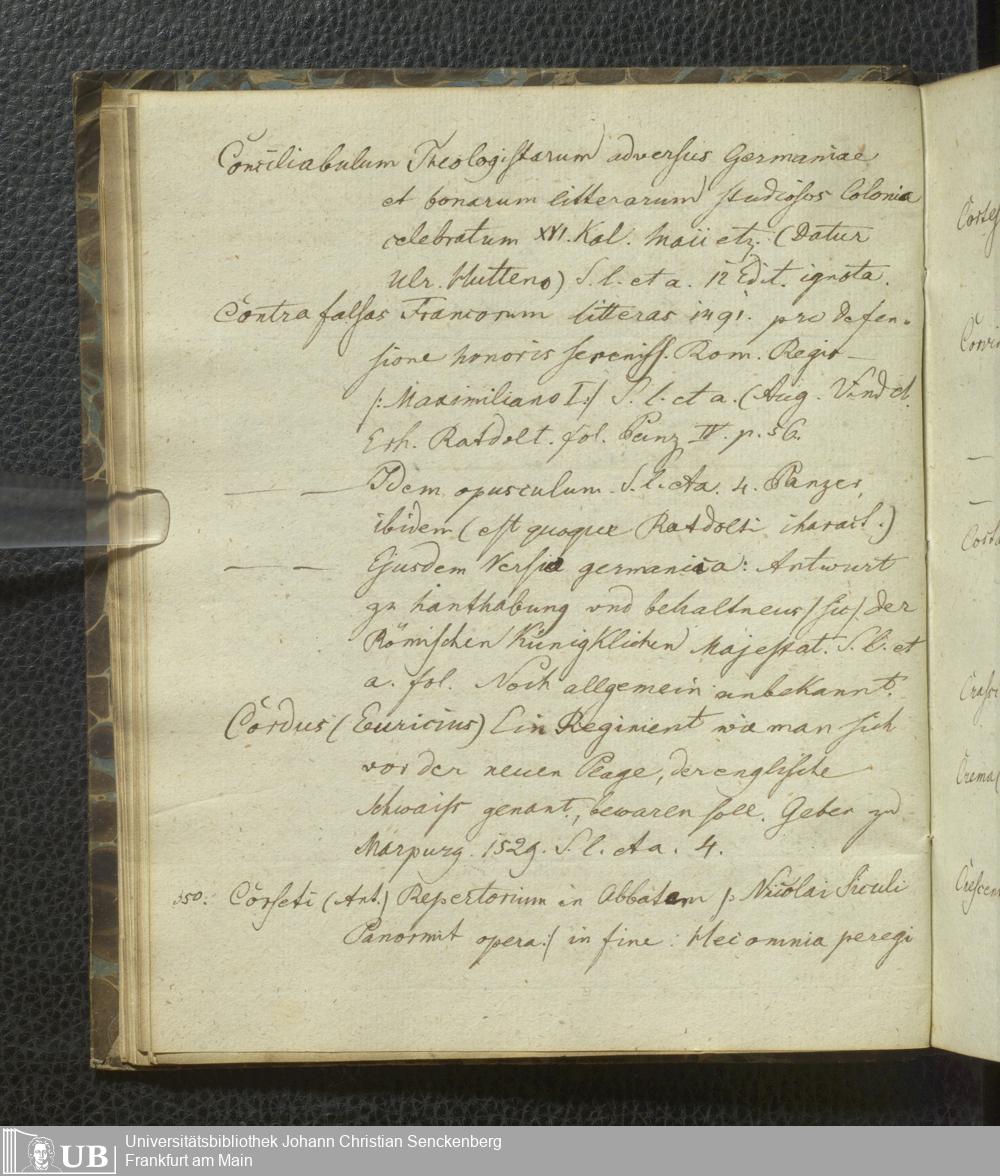 Conciliabulum Theologistarum adversus Germaniae
et bonarum litterarum studiosos Colonia
celebratum XVI. Kal. Maii etz. (Datur
Ulr. Hutteno) S. l. et a. 12 Edit. ignota.
Contra falsas Francorum litteras 1491. pro defen-
sione honoris sereniss. Rom. Regis —
/: Maximiliano I :/ S. l. et a. (Aug. Vindel.
Erh. Ratdolt. fol. Panz IV. p. 56.
— — Idem opusculum. S. l. et a. 4. Panzer,
ibidem (est quoque Ratdolti charact.)
— — Ejusdem Versio germanica: Antwurt
zu hanthabung vnd behaltneus /sic/ der
Römischen Künigklichen Majestat. S. l. et
a. fol. Noch allgemein unbekannt.
Cordus (Euricius) Ein Regiment wie man sich
vor der neuen Plage, der englische
Schwaiss genant, bewaren soll. Geben zu
Marpurg. 1529. S. l. et a. 4.
350: Corseti (Ant.) Repertorium in Abbatem /: Nicolai Siculi
Panormit opera :/ in fine: Hec omnia peregi
Cortes
Corvin
—
—
Costa
Crasso
Crema (
Crescen
UB
Universitätsbibliothek Johann Christian Senckenberg
Frankfurt am Main